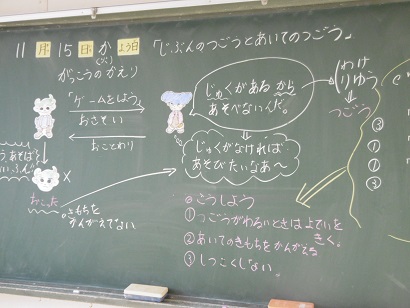 11月15日か(ぶ)曜日「じぶんのつごうとあいてのつごう」
がっこうのかえり
「ゲームをしよう。」
おさそい
おことわり
じゅくがあるから
あそべないんだ。
わけ
りゆう
つごう
じゅくがなければ
あそびたいなあ〜
おこった
きもちを
かんがえてない
◎こうしよう
①つごうがわるいときはよていを
きく。
②あいてのきもちをかんがえる
③しつこくしない。
③
①
①
③